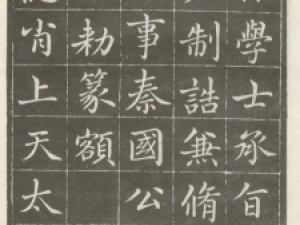 學士承旨
制誥兼脩
事秦國公
勅篆額
肖上天太